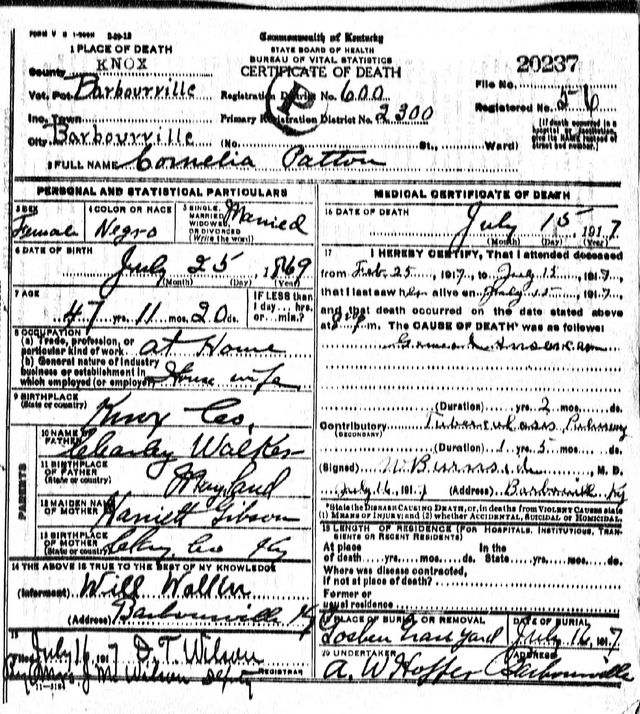 FORM V S 1-500M 2-20-12
Commonwealth of Kentucky
STATE BOARD OF HEALTH
BUREAU OF VITAL STATISTICS
CERTIFICATE OF DEATH
20237
1 PLACE OF DEATH
County KNOX
Vot. Pct. Barbourville
Inc. Town
City Barbourville (No. St., Ward)
Registration District No. 600
Primary Registration District No. 2300
File No.
Registered No. 56
(If death occurred in a hospital or institution, give its NAME instead of street and number.)
2 FULL NAME Cornelia Patton
PERSONAL AND STATISTICAL PARTICULARS
3 SEX Female
4 COLOR OR RACE Negro
5 SINGLE, MARRIED, WIDOWED, OR DIVORCED (Write the word) Married
6 DATE OF BIRTH July 25, 1869
(Month) (Day) (Year)
7 AGE 47 yrs. 11 mos. 20 ds.
IF LESS than 1 day... hrs. or... min.?
8 OCCUPATION
(a) Trade, profession, or particular kind of work at Home
(b) General nature of industry business or establishment in which employed (or employer) House wife
9 BIRTHPLACE (State or country) Knox Co,
PARENTS
10 NAME OF FATHER Charley Walker
11 BIRTHPLACE OF FATHER (State or country) Maryland
12 MAIDEN NAME OF MOTHER Harriett Gibson
13 BIRTHPLACE OF MOTHER (State or country) Clay Co Ky
14 THE ABOVE IS TRUE TO THE BEST OF MY KNOWLEDGE
(Informant) Will Walker
(Address) Barbourville Ky
15
Filed July 16 1917 D. T. Wilson
REGISTRAR
By Mrs J M Wilson Deputy
11-3184
MEDICAL CERTIFICATE OF DEATH
16 DATE OF DEATH July 15, 1917
(Month) (Day) (Year)
17 I HEREBY CERTIFY, That I attended deceased
from Feb. 25, 1917, to July 15, 1917,
that I last saw her alive on July 15, 1917,
and that death occurred on the date stated above
at m. The CAUSE OF DEATH* was as follows:
(Duration) yrs. 2 mos. ds.
Contributory Tuberculosis Pulmonary
(SECONDARY)
(Duration) 1 yrs. 5 mos. ds.
(Signed) W Burnside, M. D.
July 16, 1917 (Address) Barbourville Ky
*State the DISEASE CAUSING DEATH, or, in deaths from VIOLENT CAUSES state (1) MEANS OF INJURY; and (2) whether ACCIDENTAL, SUICIDAL or HOMICIDAL.
18 LENGTH OF RESIDENCE (FOR HOSPITALS, INSTITUTIONS, TRANSIENTS OR RECENT RESIDENTS)
At place of death yrs. mos. ds. In the State yrs. mos. ds.
Where was disease contracted, if not at place of death?
Former or usual residence
19 PLACE OF BURIAL OR REMOVAL Goshen Grave Yard
DATE OF BURIAL July 16, 1917
20 UNDERTAKER A. W Hopper
ADDRESS Barbourville